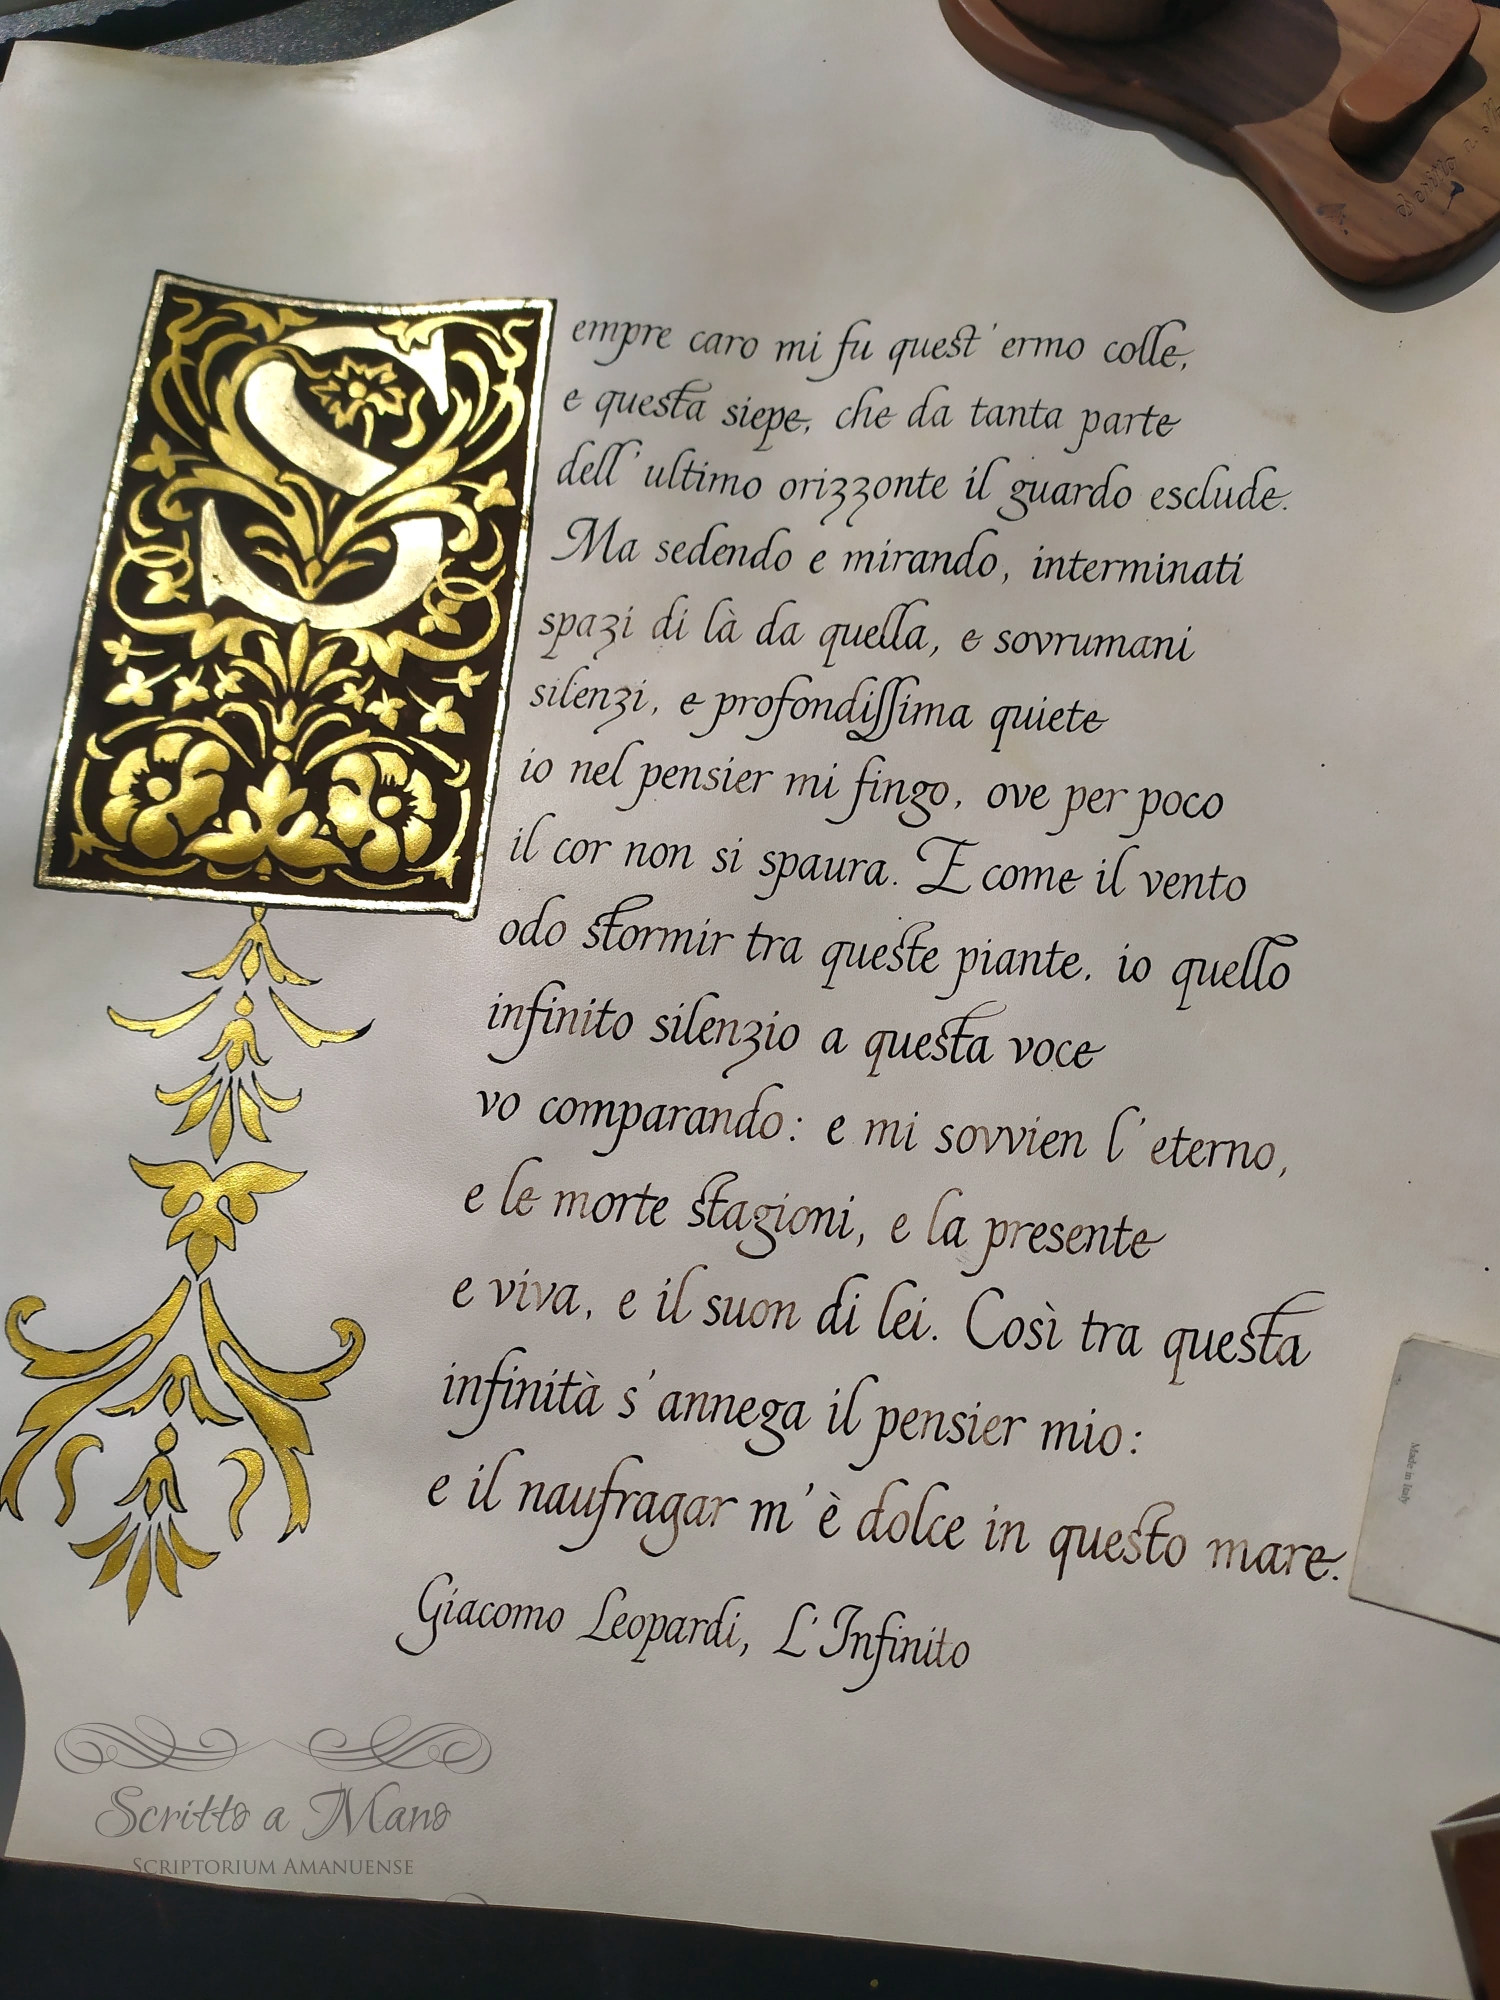 Sempre caro mi fu quest'ermo colle,
e questa siepe, che da tanta parte
dell'ultimo orizzonte il guardo esclude.
Ma sedendo e mirando, interminati
spazi di là da quella, e sovrumani
silenzi, e profondissima quiete
io nel pensier mi fingo, ove per poco
il cor non si spaura. E come il vento
odo stormir tra queste piante, io quello
infinito silenzio a questa voce
vo comparando: e mi sovvien l'eterno,
e le morte stagioni, e la presente
e viva, e il suon di lei. Così tra questa
infinità s'annega il pensier mio:
e il naufragar m'è dolce in questo mare.
Giacomo Leopardi, L'Infinito
Scritto a Mano
Scriptorium Amanuense
Made in Italy